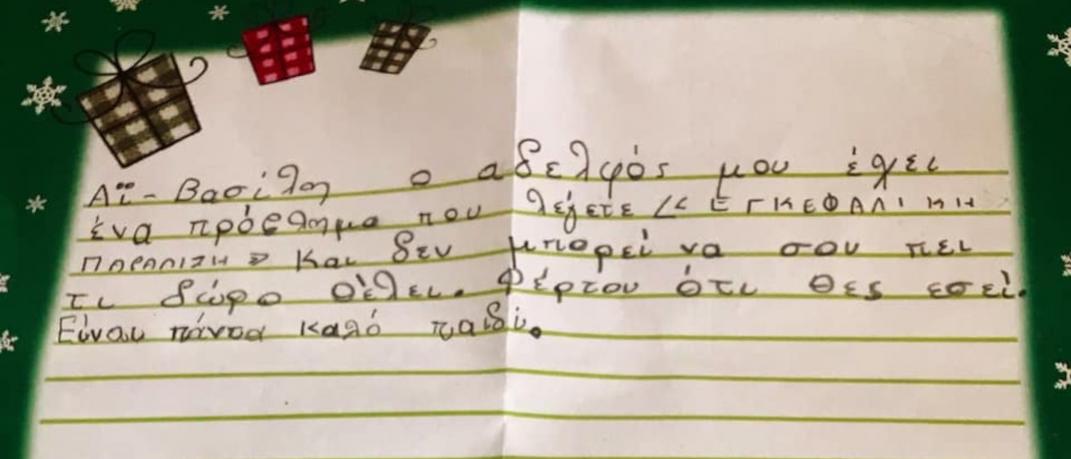 Αϊ-Βασίλη ο αδελφός μου έχει
ένα πρόβλημα που λέγετε << ΕΓΚΕΦΑΛΙΚΗ
ΠΑΡΑΛΙΣΗ >> και δεν μπορεί να σου πει
τι δώρο θέλει. Φέρτου ότι θες εσεί.
Είναι πάντα καλό παιδί.